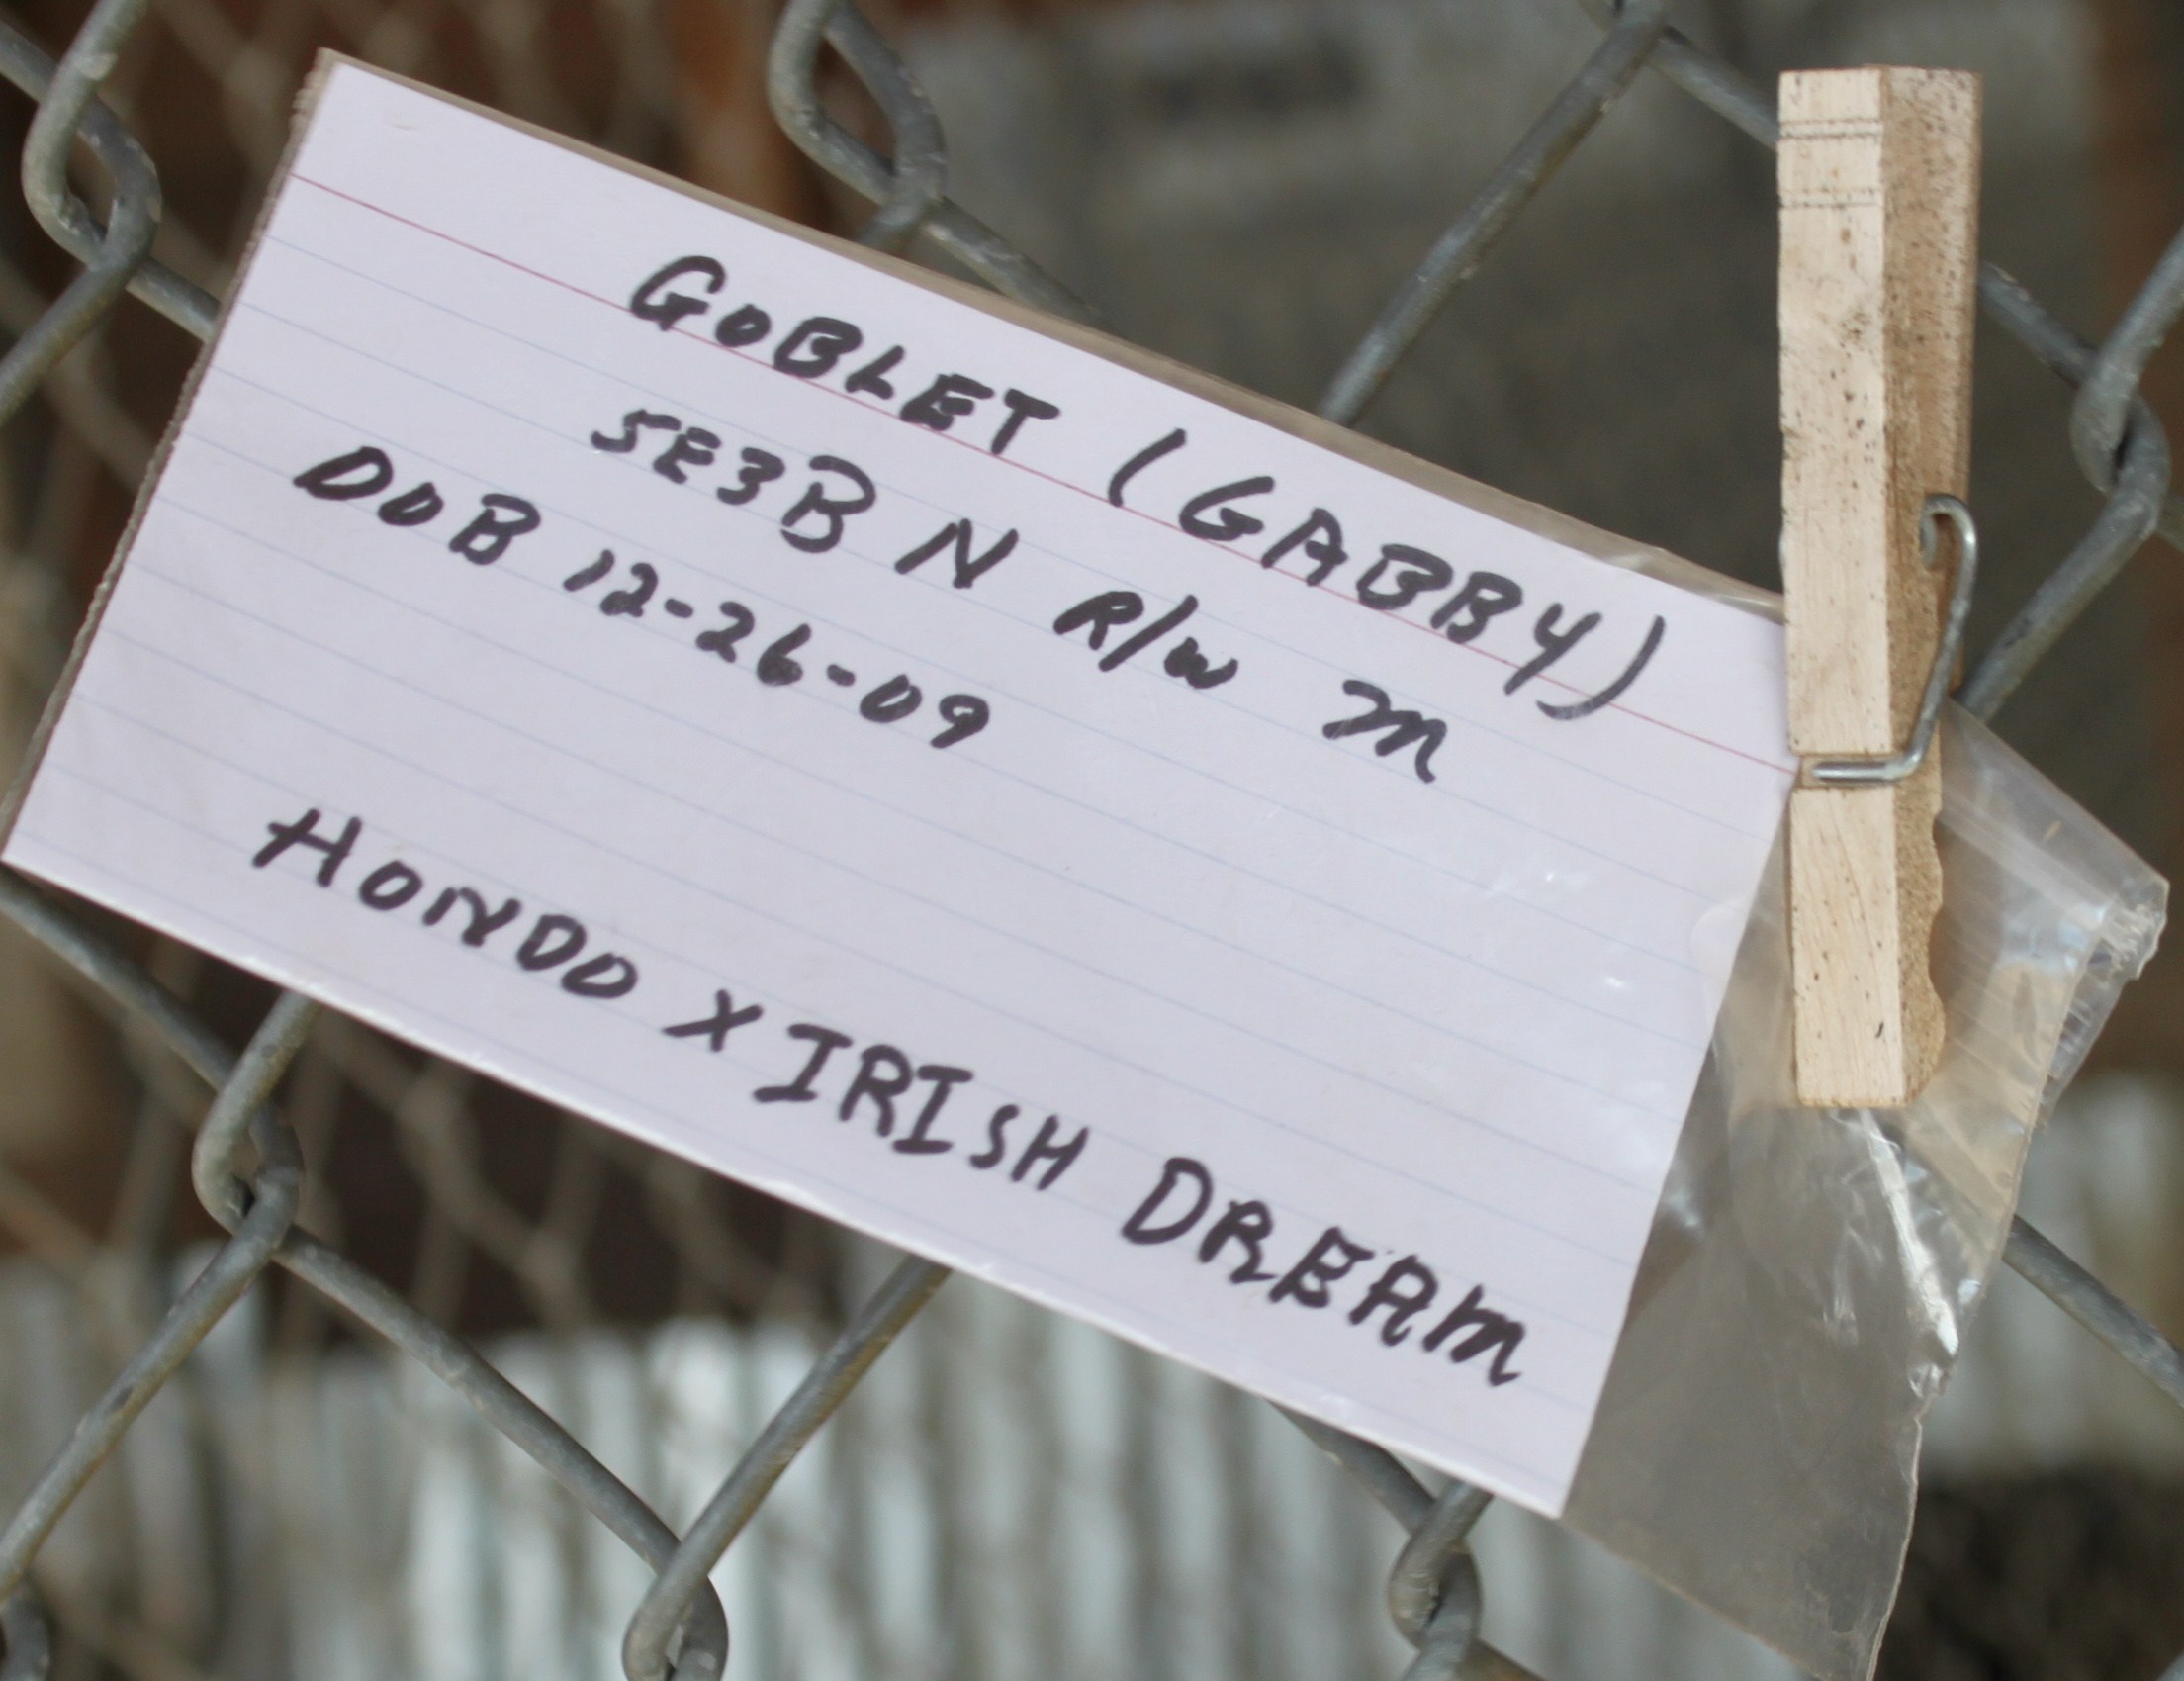 GOBLET (GABBY)
5E3B N R/W M
DOB 12-26-09
HONDO X IRISH DREAM